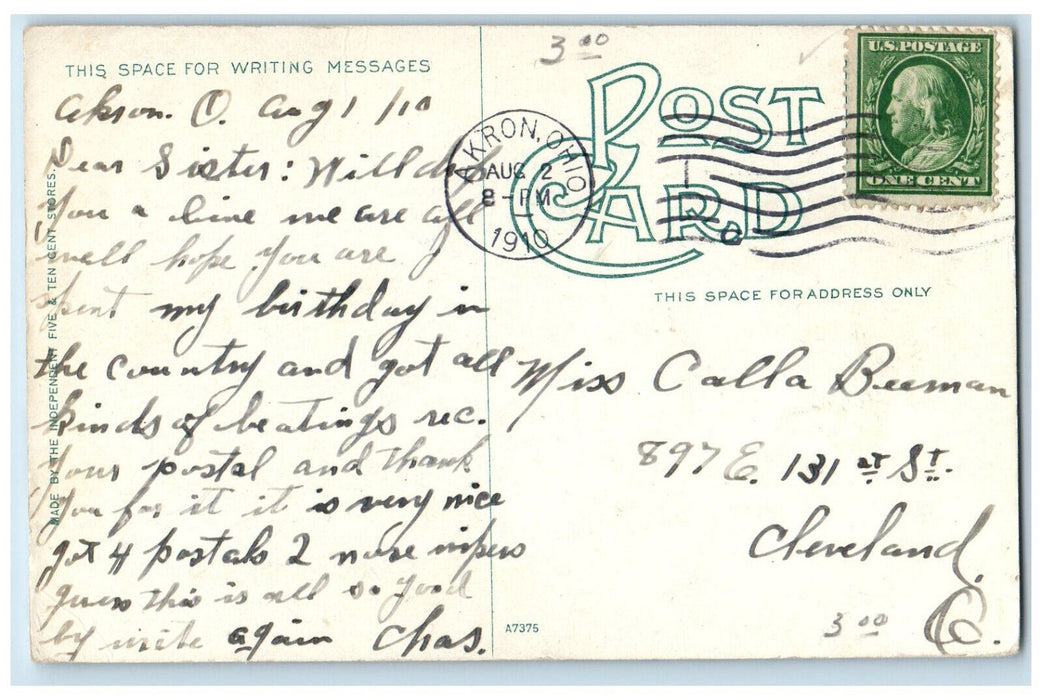 3 00
THIS SPACE FOR WRITING MESSAGES
Akron. O. Aug 1 /10
Dear Sister: Will drop
you a line we are all
well hope you are I
spent my birthday in
the country and got all
kinds of beatings rec.
your postal and thank
you for it it is very nice
got 4 postals 2 nose wipers
guess this is all so good
by write again Chas.
MADE BY THE INDEPENDENT FIVE & TEN CENT STORES.
POST
CARD
AKRON, OHIO
AUG 2
8-PM
1910
U.S. POSTAGE
ONE CENT
THIS SPACE FOR ADDRESS ONLY
Miss Calla Beeman
897 E. 131 st St.
Cleveland,
O.
3 00
A7375